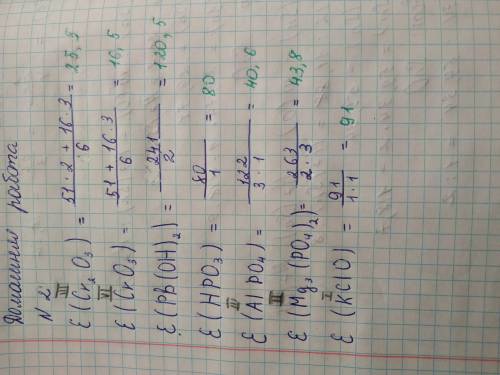 Домашняя работа
N 2
Ɛ (Cr₂O₃) = 51 · 2 + 16 · 3 / 6 = 25,5
Ɛ (CrO₃) = 51 + 16 · 3 / 6 = 16,5
Ɛ (Pb(OH)₂) = 241 / 2 = 120,5
Ɛ (HPO₃) = 80 / 1 = 80
Ɛ (AlPO₄) = 122 / 3 · 1 = 40,6
Ɛ (Mg₃(PO₄)₂) = 263 / 2 · 3 = 43,8
Ɛ (KClO) = 91 / 1 · 1 = 91